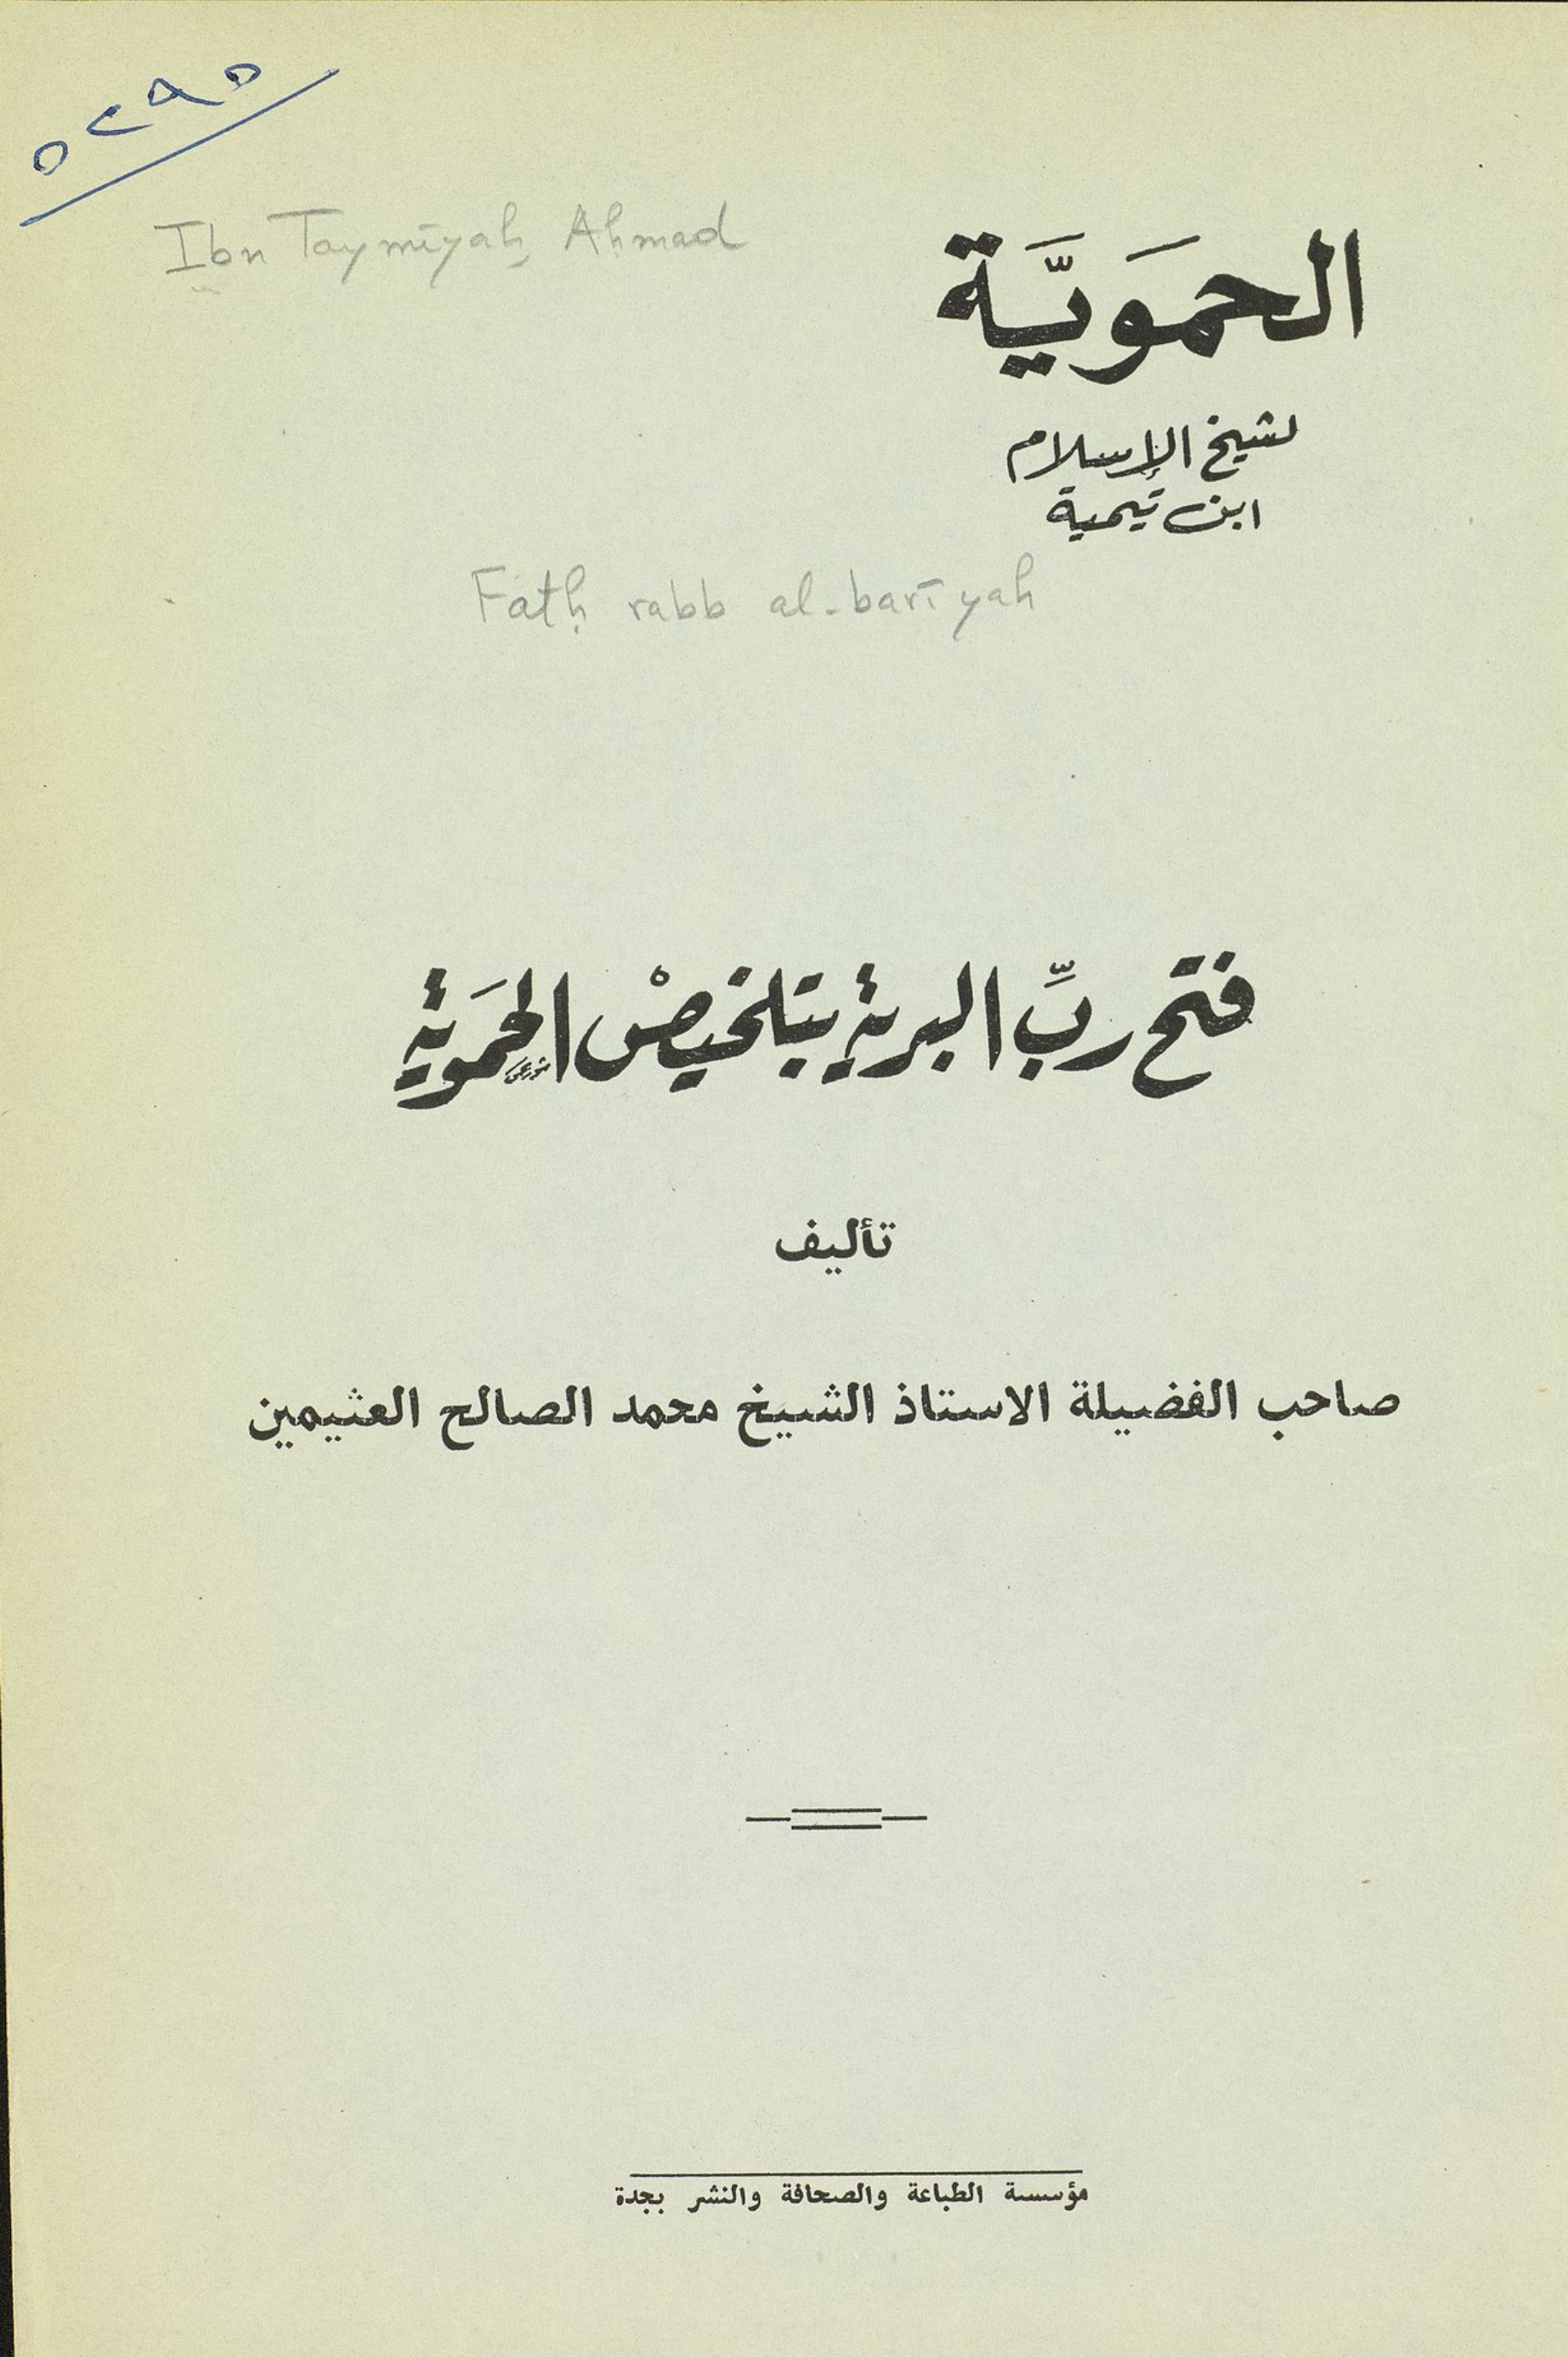 Ibn Taymīyah, Ahmad
الحمَويَّة
لشيخ الإسلام
ابن تيمية
Fatḥ rabb al-barīyah
فتح ربِّ البرية بتلخيصْ الحَموية
تأليف
صاحب الفضيلة الاستاذ الشيخ محمد الصالح العثيمين
مؤسسة الطباعة والصحافة والنشر بجدة